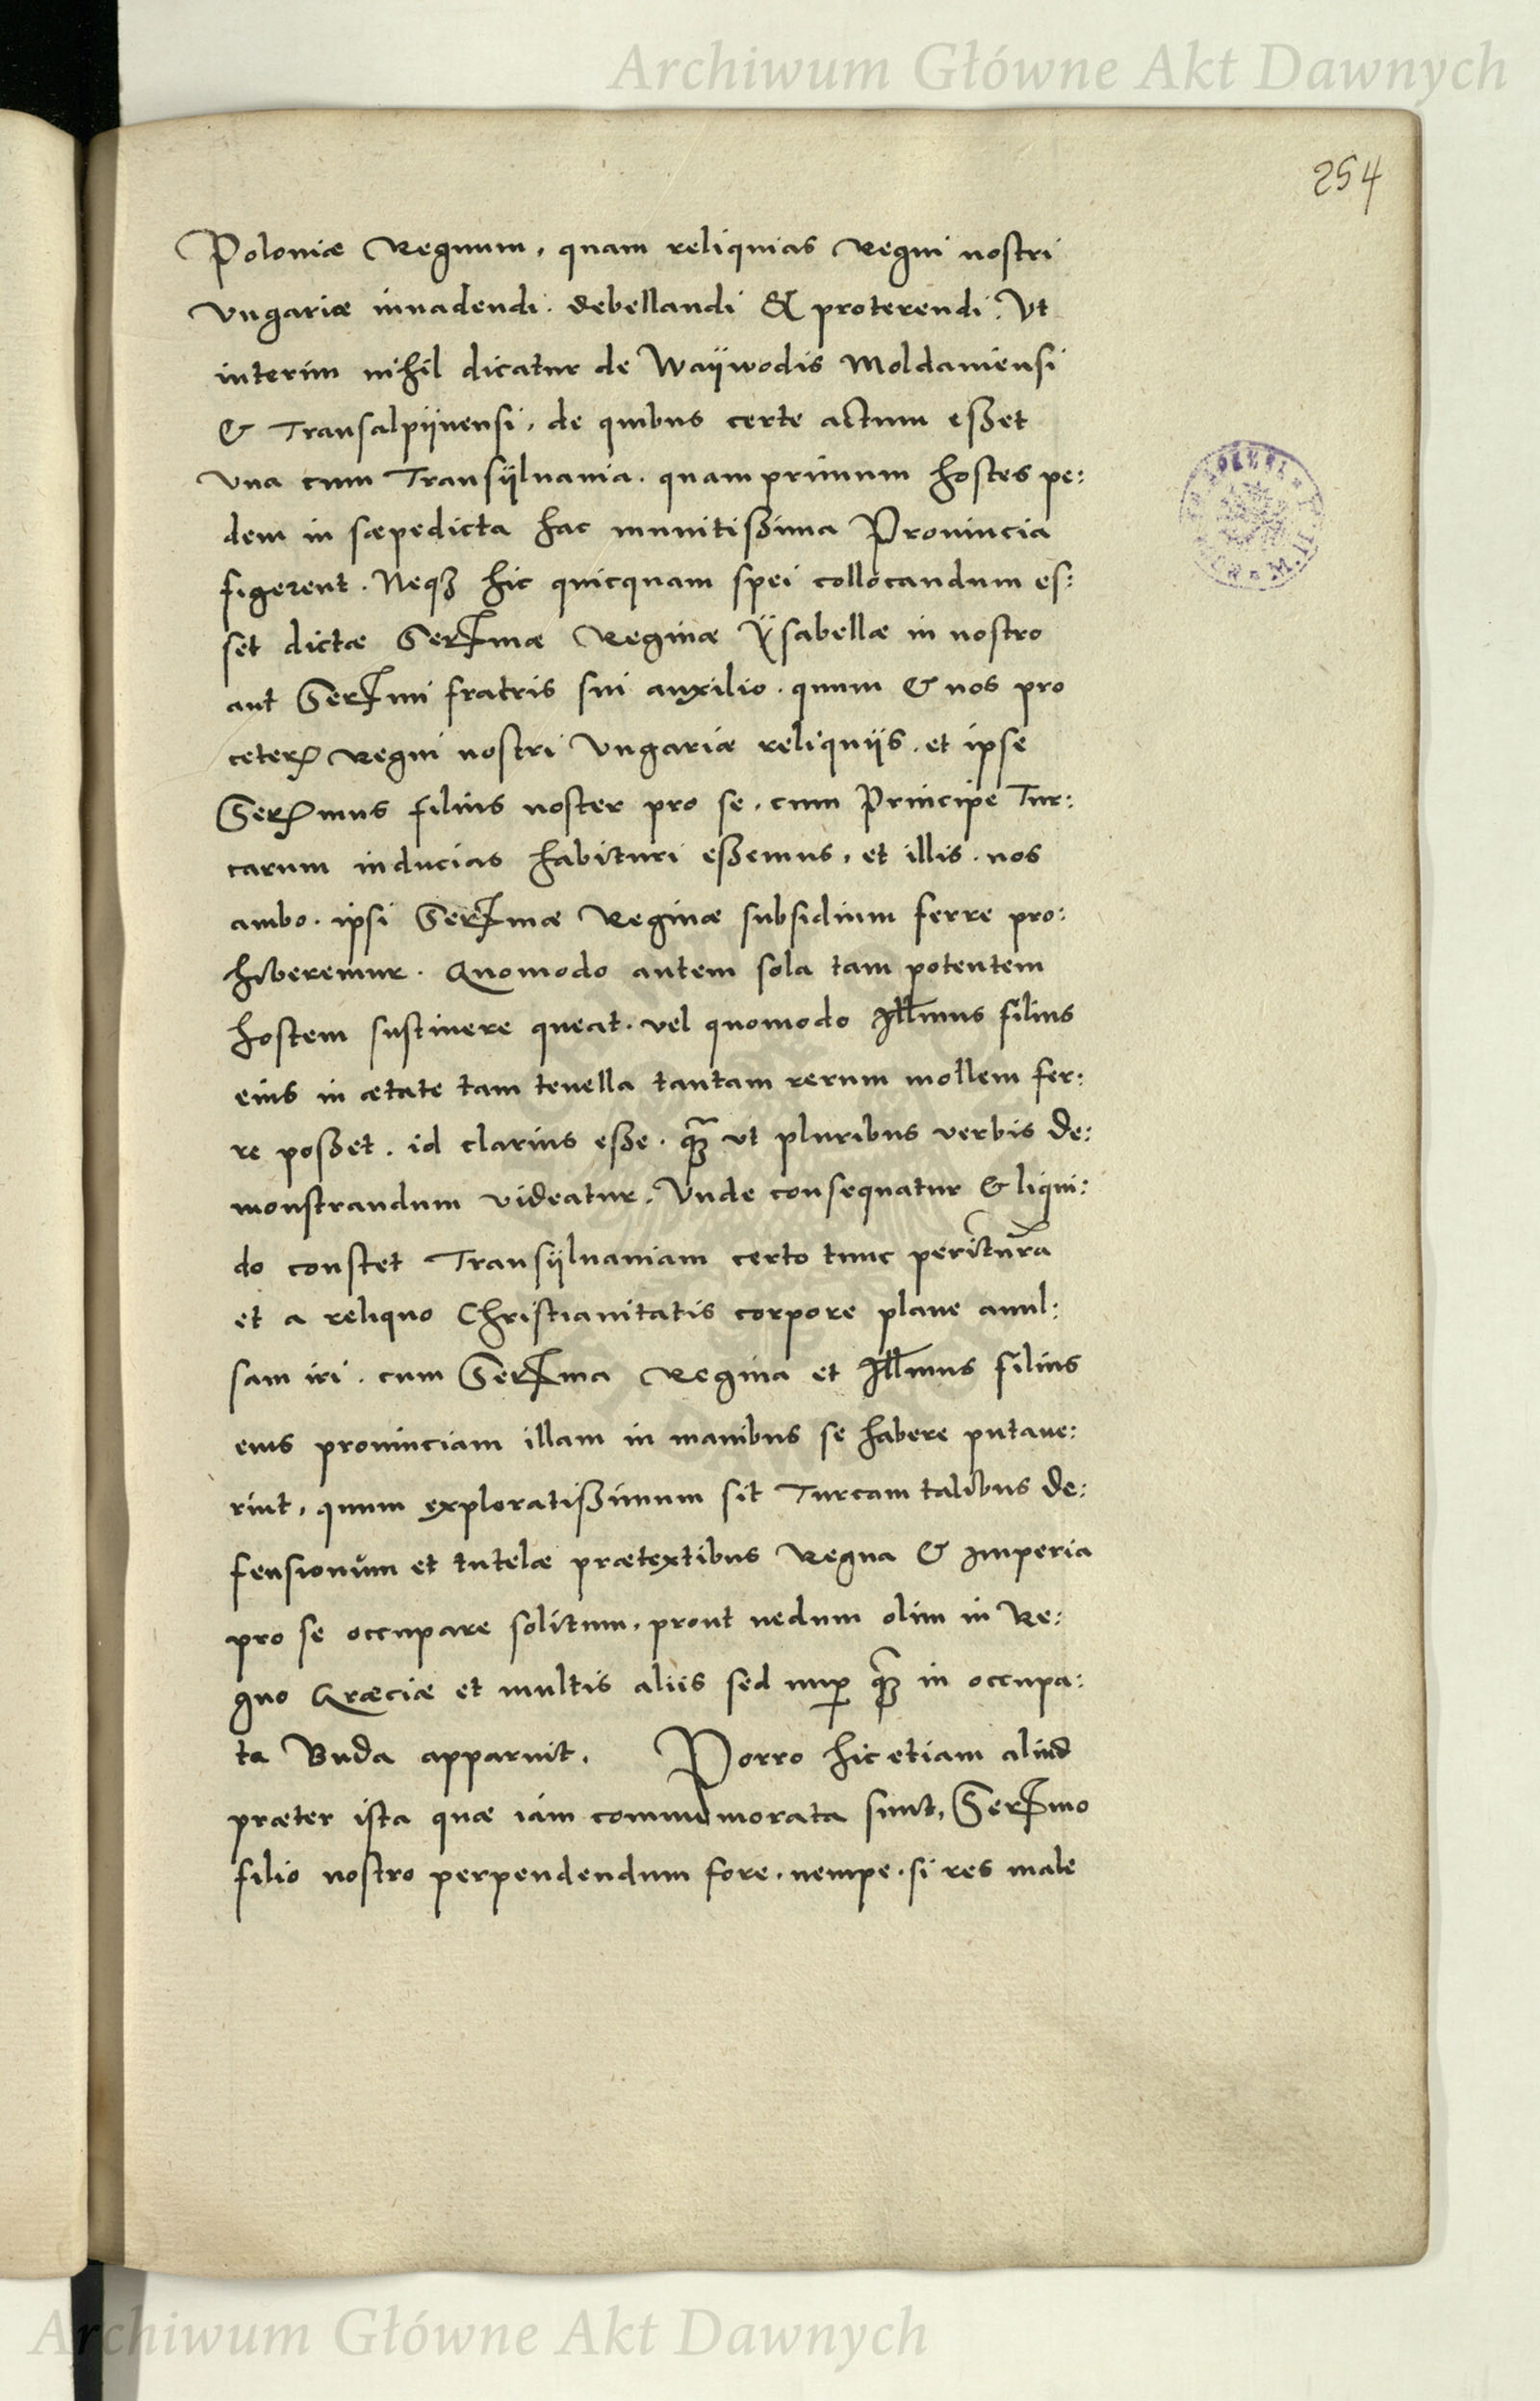 Archiwum Główne Akt Dawnych
254
Poloniæ Regnum, quam reliquias Regni nostri
Vngariæ inuadendi. debellandi & proterendi. Vt
interim nihil dicatur de Waÿwodis Moldauiensi
& Transalpÿnensi, de quibus certe actum eßet
Vna cum Transÿluania. quamprimum hostes pe:
dem in sæpedicta hac munitißima Prouincia
figerent. Neqꝫ hic quicquam spei collocandum es:
set dictæ Serꝭmæ Reginæ Ÿsabellæ in nostro
aut Serꝭmi fratris sui auxilio. quum & nos pro
ceterꝭ Regni nostri Vngariæ reliquÿs. et ipse
Serꝭmus filius noster pro se, cum Principe Tur:
carum inducias habituri eßemus, et illis. nos
ambo. ipsi Serꝭmæ Reginæ subsidium ferre pro:
hiberemur. Quomodo autem sola tam potentem
hostem sustinere queat. vel quomodo Illmus filius
eius in ætate tam tenella tantam rerum mollem fer:
re poßet. id clarius eße. qꝫ̃ vt pluribus verbis de:
monstrandum videatur. Vnde consequatur & liqui:
do constet Transÿluaniam certo tunc periturã
et a reliquo Christianitatis corpore plane auul:
sam iri. cum Serꝭma Regina et Illmus filius
eius prouinciam illam in manibus se habere putaue:
rint, quum exploratißimum sit Turcam talibus de:
fensionum et tutelæ prætextibus Regna & Imperia
pro se occupare solitum, prout nedum olim in Re:
gno Græciæ et multis aliis sed nuꝑ qꝫ̃ in occupa:
ta Buda apparuit. Porro hic etiam aliud
præter ista quæ iam commemorata sunt, Serꝭmo
filio nostro perpendendum fore. nempe. si res male
Archiwum Główne Akt Dawnych